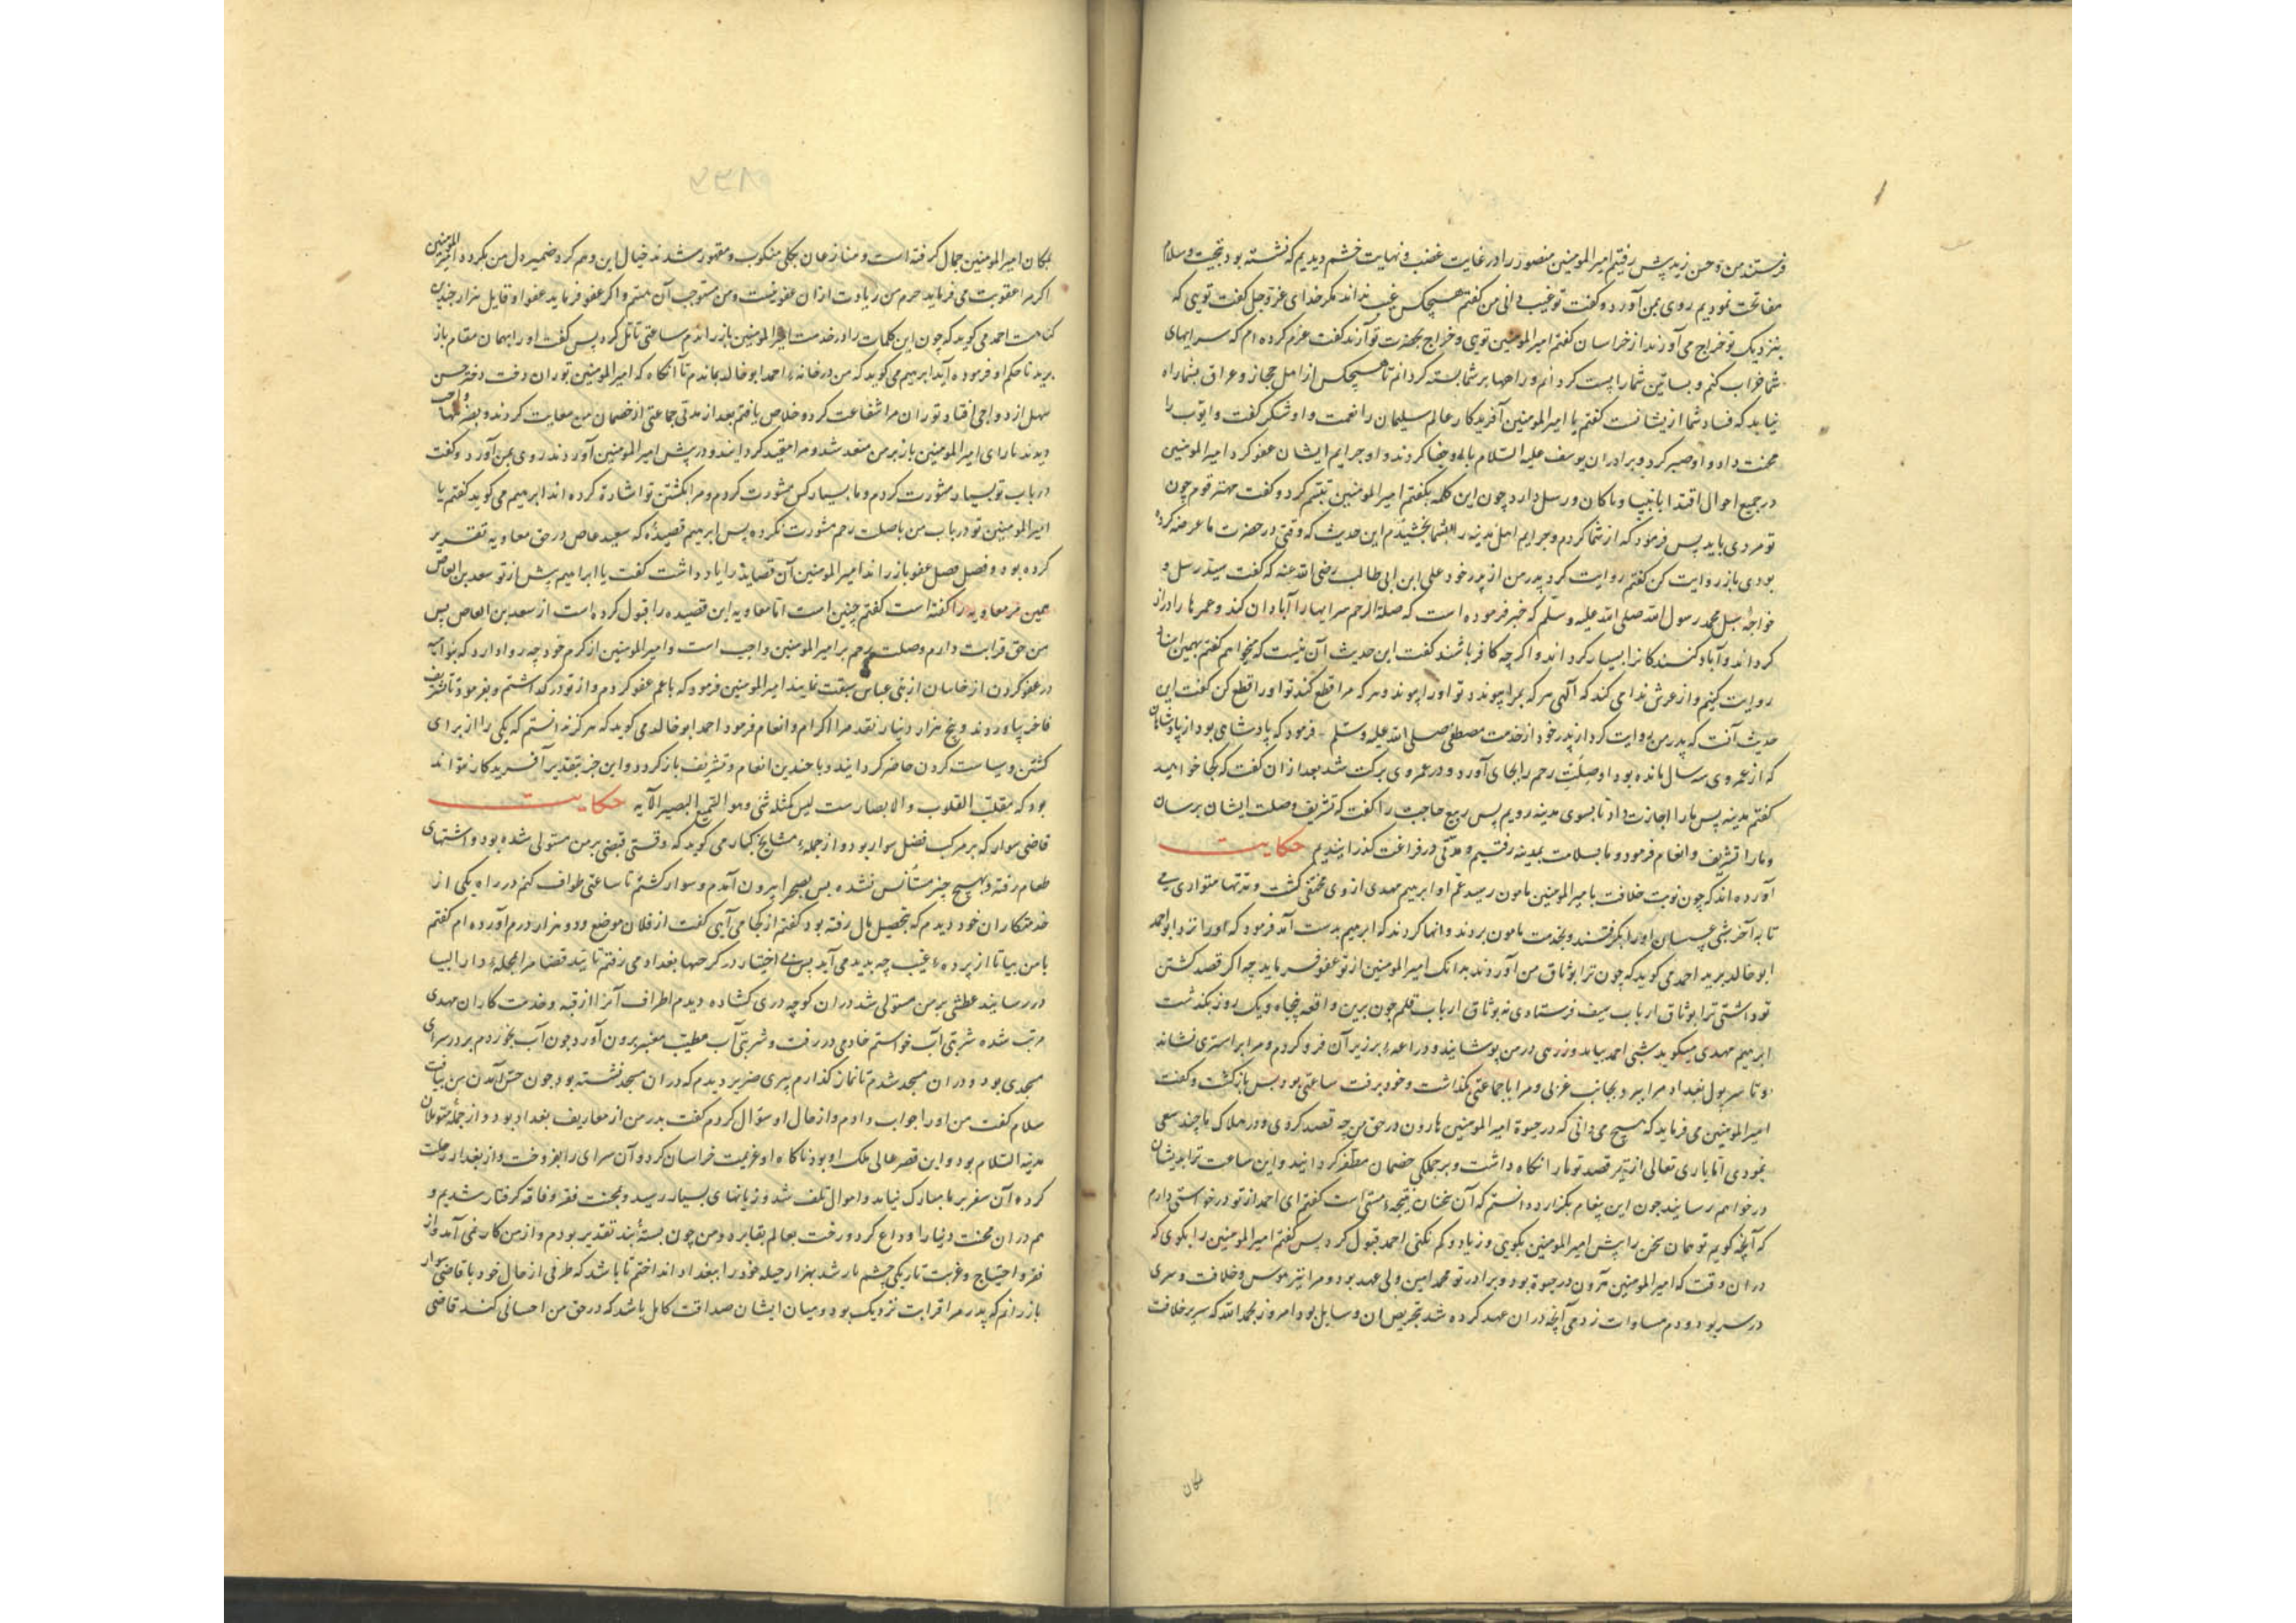 فرستند من و حسن زید پیش رفتیم امیرالمومنین منصور را در غایت غضب و نهایت خشم دیدیم که نشسته بود تحیت و سلام
مفاتحت نمودیم روی بمن آورد و کفت تو غیب دانی من کفتم هیچکس غیب نداند مکر خدای عز و جل کفت تویی که
بنزدیک تو خراج می آورند از خراسان کفتم امیرالمومنین تویی و خراج بحضرت تو آرند کفت عزم کرده ام که سرایهای
شما خراب کنم و بساتین شما را پست کردانم و راهها بر شما بسته کردانم تا هیچکس از اهل حجاز و عراق بشما راه
نیابد که فساد شما ازیشانست کفتم یا امیرالمومنین آفریدکار عالم سلیمان را نعمت داد شکر کفت و ایوب را
محنت داد و او صبر کرد و برادران یوسف علیه السلام با وی جفا کردند و او جرایم ایشان عفو کرد امیرالمومنین
در جمیع احوال اقتدا بانبیا و رسل دارد چون این کلمه بکفتم امیرالمومنین تبسم کرد و کفت مهتر قوم چون
تو مردی باید پس فرمود که از شما کردم و جرایم اهل مدینه را بشما بخشیدم این حدیث که وقتی در حضرت ما عرضه کرده
بودی باز روایت کن کفتم روایت کرد پدر من از پدر خود علی ابن ابی طالب رضی الله عنه که کفت سید رسل و
خواجه سبل محمد رسول الله صلی الله علیه و سلم که خبر فرموده است که صلة الرحم سرایها را آبادان کند و عمرها را دراز
کرداند و آباد کنندکانرا بسیار کرداند و اکرچه کافر باشند کفت این حدیث آن نیست که میخواهم کفتم بهمین اسناد
روایت کنیم و از عرش ندا می کند که آلهی هر که بمرا پیوندد تو او را پیوند و هر که مرا قطع کند تو او را قطع کن کفت این
حدیث آنست که پدر من روایت کرد از پدر خود از خدمت مصطفی صلی الله علیه و سلم فرمود که پادشاهی بود از پادشاهان
که از عمر وی سه سال مانده بود او صلت رحم را بجای آورد و در عمر وی برکت شد بعد از ان کفت که کجا خواهید
کفتم مدینه پس ما را اجازت داد تا بسوی مدینه رویم پس ربیع حاجب را کفت که تشریف و صلت ایشان برسان
و ما را تشریف و انعام فرمود و ما بسلامت بمدینه رفتیم و مدتی در فراغت کذرانیدیم حکایت
آورده اند که چون نوبت خلافت بامیرالمومنین مامون رسید عم او ابراهیم مهدی از وی مختفی کشت و مدتها متواری می
تا به آخر شبی عسسان او را بکرفتند و بخدمت مامون بردند و انها کردند که ابراهیم بدست آمد فرمود که او را نزد ابو احمد
ابو خالد برید احمد می کوید که چون ترا بوثاق من آوردند بدانک امیرالمومنین از تو عفو فرماید چه اکر قصد کشتن
تو داشتی ترا بوثاق ارباب سیف فرستادی نه بوثاق ارباب قلم چون برین واقعه پنجاه و یک روز بکذشت
ابرهیم مهدی میکوید شبی احمد بیامد و زرهی در من پوشانید و دراعه بر زبر آن فرو کردم و مرا بر استری نشاند
و تا سر پول بغداد مرا ببرد بجانب غربی و مرا با جماعتی بکذاشت و خود برفت ساعتی بود پس بازکشت و کفت
امیرالمومنین می فرماید که هیچ می دانی که در حیوة امیرالمومنین هارون در حق من چه قصد کردی و در هلاک ما چند سعی
نمودی اما باری تعالی از تیر قصد تو ما را نکاه داشت و بر جملکی خصمان مظفر کردانید و این ساعت ترا بدیشان
در خواهم رسانید چون این پیغام بکزارد دانستم که آن سخنان نتیجه مستی است کفتم ای احمد از تو درخواستی دارم
که آنچه کویم تو همان سخن را پیش امیرالمومنین بکویی و زیاد و کم نکنی احمد قبول کرد پس کفتم امیرالمومنین را بکوی که
در ان وقت که امیرالمومنین هرون در حیوة بود و برادر تو محمد امین ولی عهد بود و مرا نیز هوس خلافت و سری
در سر بود و دم مساوات زدمی آنچه در ان عهد کرده شد بتحریص ان وسایل بود امروز بحمد الله که سریر خلافت
بمکان
بمکان امیرالمومنین جمال کرفته است و منازعان بکلی منکوب و مقهور شدند خیال این وهم کرد ضمیر دل من نکردد امیرالمومنین
اکر مرا عقوبت می فرماید جرم من زیادت از ان عفو نیست و من مستوجب آن هستم و اکر عفو فرماید عفو او قابل هزار چندین
کناهست احمد می کوید که چون این کلمات را در خدمت امیرالمومنین باز راندم ساعتی تامل کرد پس کفت او را بهمان مقام باز
برید تا حکم او فرموده آید ابرهیم می کوید که من در خانه احمد ابو خالد بماندم تا آنکاه که امیرالمومنین بتوران دخت دختر حسن
سهل ازدواجی افتاد توران مرا شفاعت کرد و خلاص یافتم بعد از مدتی جماعتی از خصمان من سعایت کردند و بعضی بها واجب
دیدند تا رای امیرالمومنین باز بر من متغیر شد و مرا مقید کردانیدند و در پیش امیرالمومنین آوردند روی بمن آورد و کفت
در باب تو بسیار مشورت کردم و با بسیار کس مشورت کردم و مرا بکشتن تو اشارة کرده اند ابرهیم می کوید کفتم یا
امیرالمومنین تو در باب من با صلت رحم مشورت نکرده پس ابرهیم قصیده که سعید عاص در حق معاویه تقریر
کرده بود و فصل فصل عفو باز راند امیرالمومنین آن قصاید را یاد داشت کفت یا ابراهیم پیش از تو سعد بن العاص
همین مر معاویه را کفته است کفتم چنین است اما معاویه این قصیده را قبول کرده است از سعد بن العاص پس
من حق قرابت دارم و صلت رحم بر امیرالمومنین واجب است و امیرالمومنین از کرم خود چه روا دارد که بنو امیه
در عفو کردن از خاسان از بنی عباس سبقت نمایند امیرالمومنین فرمود که یا عم عفو کردم و از تو درکذاشتم و بفرمود تا تشریف
فاخر بیاوردند و پنج هزار دینار نقد مرا اکرام و انعام فرمود احمد ابو خالد می کوید که هرکز ندانستم که یکی را از برای
کشتن و سیاست کردن حاضر کردانند و با چندین انعام و تشریف باز کردد و این جز بتقدیر آفریدکار نتواند
بود که مقلب القلوب و الابصارست لیس کمثله شی و هو السمیع البصیر الآیه حکایت
قاضی سوار که بر مرکب فضل سوار بود و از جمله مشایخ کبار می کوید که وقتی قبضی بر من مستولی شده بود و اشتهای
طعام رفته و بهیچ چیز مستأنس نشده پس بصحرا بیرون آمدم و سوار کشتم تا ساعتی طواف کنم در راه یکی از
خدمتکاران خود دیدم که بتحصیل مال رفته بود کفتم از کجا می آیی کفت از فلان موضع و دو هزار درم آورده ام کفتم
با من بیا تا از پرده غیب چه پدید می آید پس بی اختیار در کرخها بغداد می رفتم تا قید قضا مرا بمحله دار ابیا
در رسانید عطشی بر من مستولی شد در ان کوچه دری کشاده دیدم اطراف آنرا از قبه و خدمت کاران مهدی
مرتب شده شربتی آب خواستم خادمی در رفت و شربتی آب مطیب معنبر بیرون آورد چون آب بخوردم بر در سرای
مسجدی بود و در ان مسجد شدم تا نماز کذارم پیری ضریر دیدم که در ان مسجد نشسته بود چون حس آمدن من بیافت
سلام کفت من او را جواب دادم و از حال او سؤال کردم کفت پدر من از معاریف بغداد بود و از جمله متمولان
مدینة السلام بود و این قصر عالی ملک او بود ناکاه او عزیمت خراسان کرد و آن سرای را بفروخت و از بغداد رحلت
کرده آن سفر بر ما مبارک نیامد و اموال تلف شد و زیانهای بسیار رسید و بمحنت فقر و فاقه کرفتار شدیم و
هم در ان محنت دنیا را وداع کرد و رخت بعالم بقا برد و من چون بسته بند تقدیر بودم و از من کار نمی آمد و از
فقر و احتیاج و غربت تاریکی چشم یار شد بهزار حیله خود را ببغداد انداختم تا باشد که طرفی از حال خود با قاضی سوار
باز رانم که پدر مرا قرابت نزدیک بود و میان ایشان صداقت کامل باشد که در حق من احسانی کند قاضی